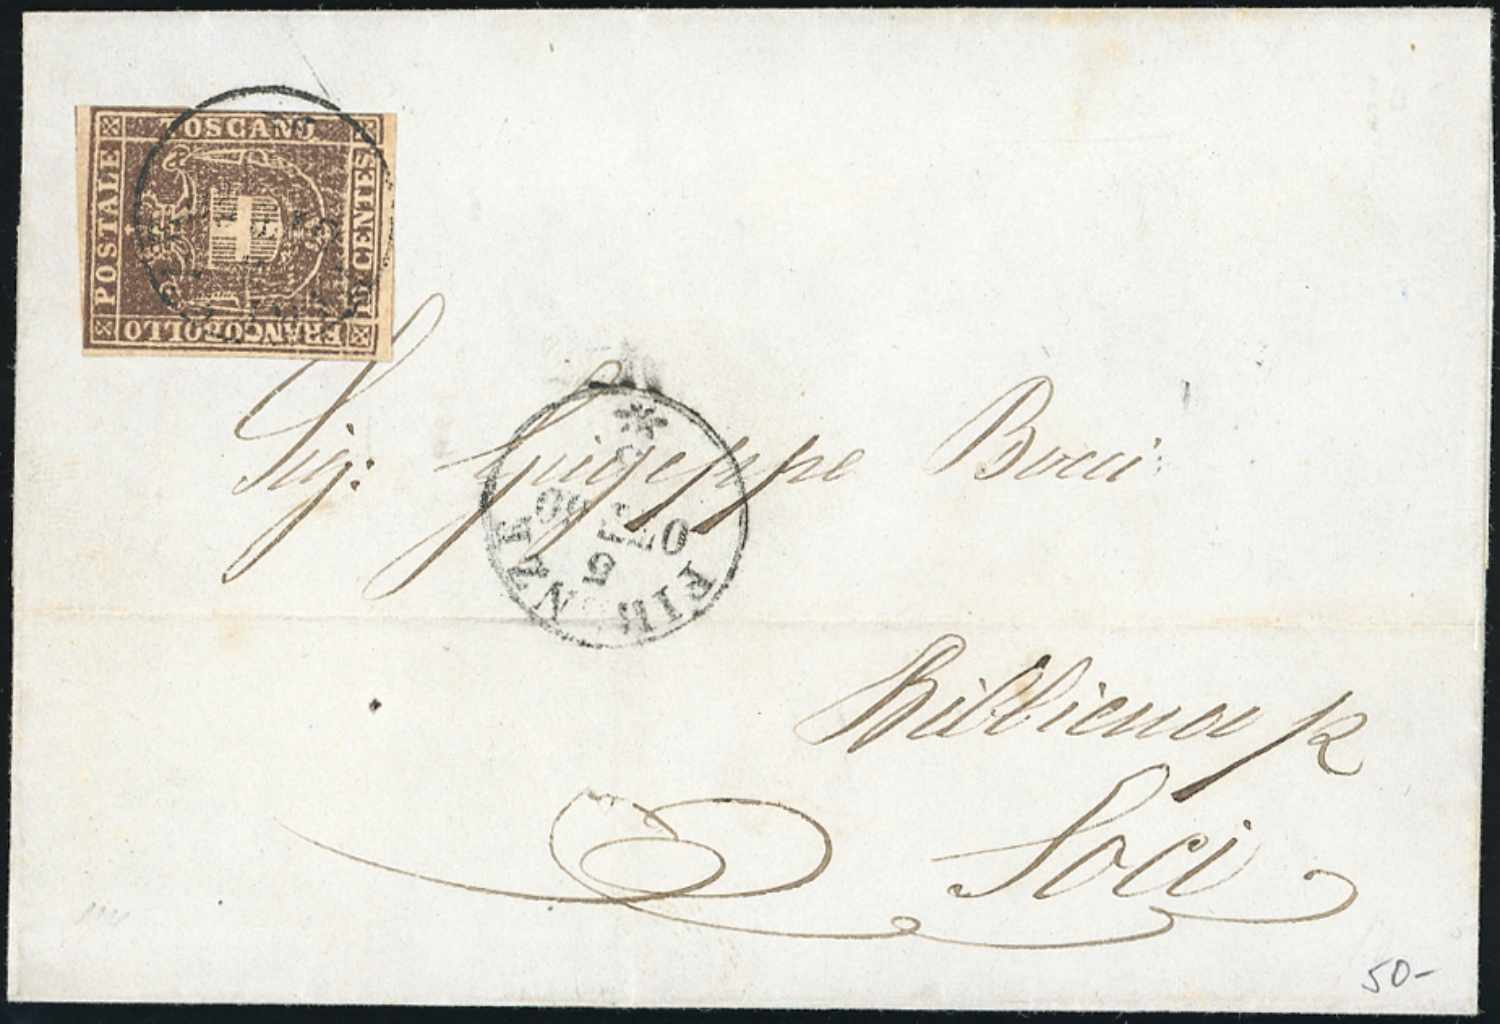 FRANCOBOLLO
POSTALE
TOSCANO
10 CENTES
Sig: Giuseppe Bocci
FIRENZE
5
OTT 60
Bibbiena p
Soci
50-